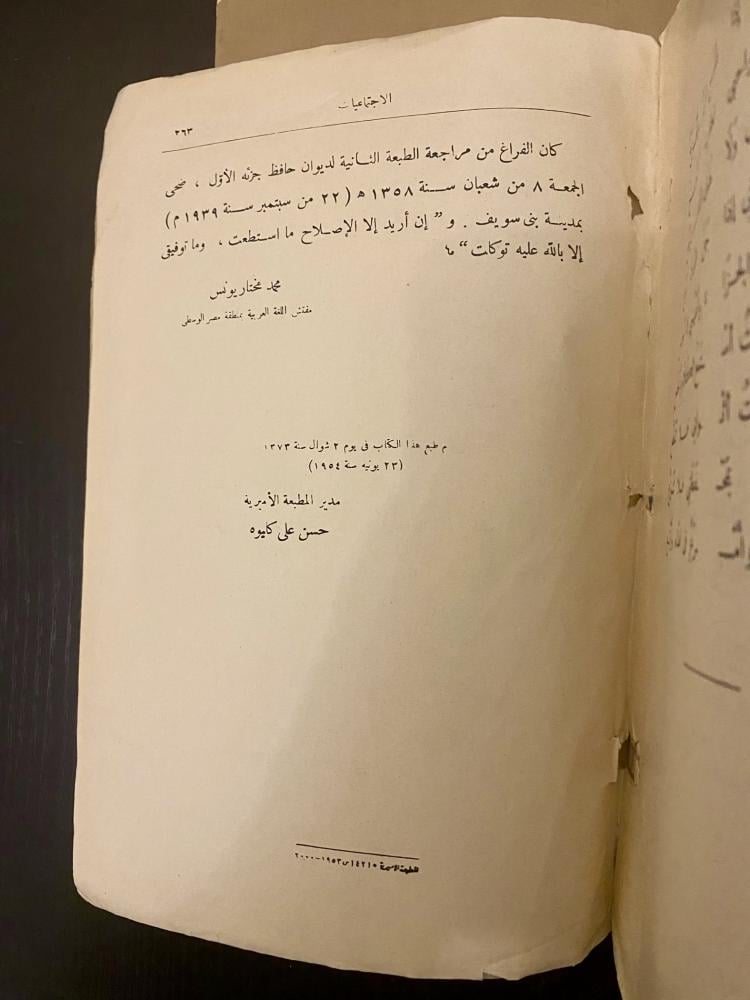 الاجتماعيات
٢٦٣
كان الفراغ من مراجعة الطبعة الثانية لديوان حافظ جزئه الأول ، ضحى
الجمعـة ٨ من شعبان ســنة ١٣٥٨ ﻫ (٢٢ من سبتمبر ســنة ١٩٣٩ م)
بمدينــة بنى سويف . و ” إن أريد إلا الإصـلاح ما اسـتطعت ، وما توفيقى
إلا بالله عليه توكلت “
محمد مختار يونس
مفتش اللغة العربية بمنطقة مصر الوسطى
م طبع هذا الكتاب فى يوم ٢ شوال سنة ١٣٧٣
(٢٣ يونيه سنة ١٩٥٤)
مدير المطبعة الأميرية
حسن على كليوه
المطبعة الأميرية ١٩٥٣-٢٠٠٠